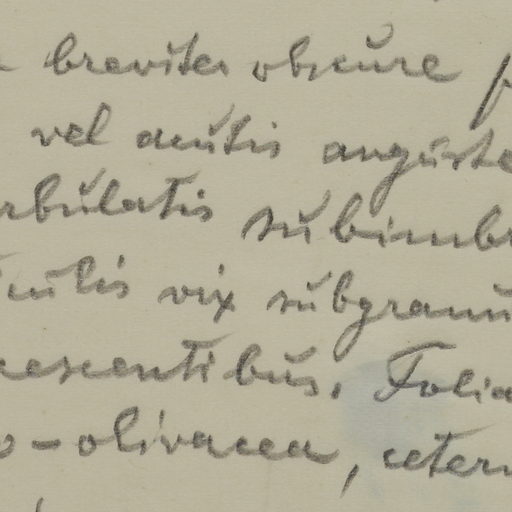 breviter obscure
vel acutis anguste
rbulatis subimbr
culis vix subgranu
cescentibus. Folia
o-olivacea, ceter